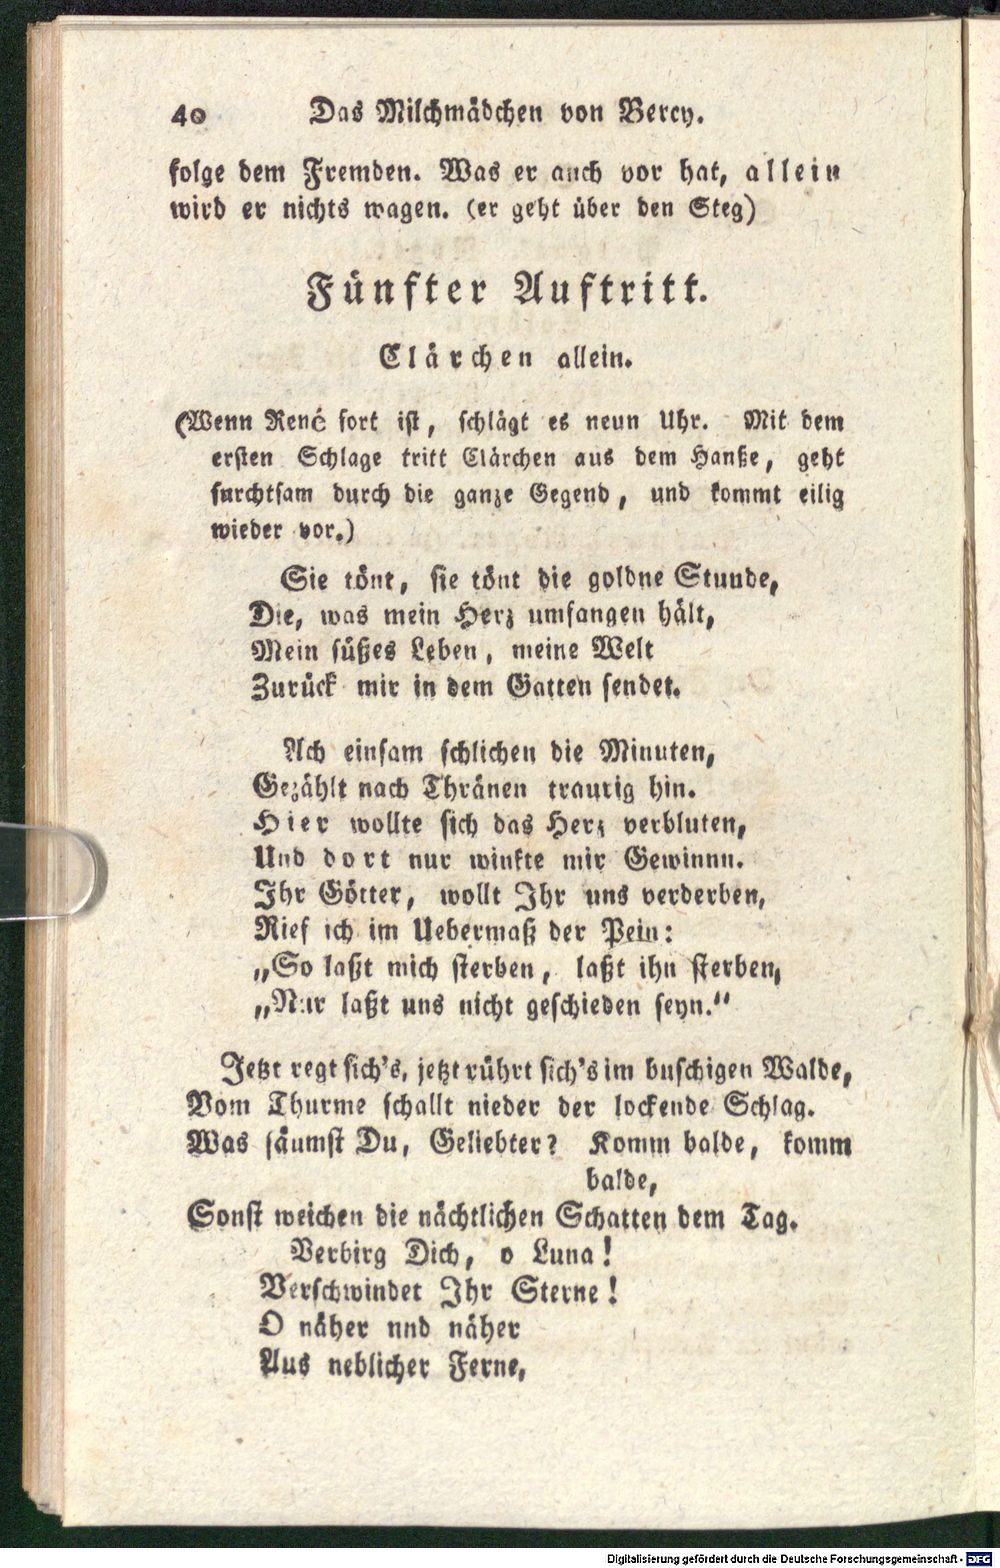 40 Das Milchmädchen von Bercy.
folge dem Fremden. Was er auch vor hat, allein
wird er nichts wagen. (er geht über den Steg)
Fünfter Auftritt.
Clärchen allein.
(Wenn René fort ist, schlägt es neun Uhr. Mit dem
ersten Schlage tritt Clärchen aus dem Hanße, geht
furchtsam durch die ganze Gegend, und kommt eilig
wieder vor.)
Sie tönt, sie tönt die goldne Stunde,
Die, was mein Herz umfangen hält,
Mein süßes Leben, meine Welt
Zurück mir in dem Gatten sendet.
Ach einsam schlichen die Minuten,
Gezählt nach Thränen traurig hin.
Hier wollte sich das Herz verbluten,
Und dort nur winkte mir Gewinnn.
Ihr Götter, wollt Ihr uns verderben,
Rief ich im Uebermaß der Pein:
„So laßt mich sterben, laßt ihn sterben,
„Nur laßt uns nicht geschieden seyn.“
Jetzt regt sich's, jetzt rührt sich's im buschigen Walde,
Vom Thurme schallt nieder der lockende Schlag.
Was säumst Du, Geliebter? Komm balde, komm
balde,
Sonst weichen die nächtlichen Schatten dem Tag.
Verbirg Dich, o Luna!
Verschwindet Ihr Sterne!
O näher nnd näher
Aus neblicher Ferne,
Digitalisierung gefördert durch die Deutsche Forschungsgemeinschaft - DFG